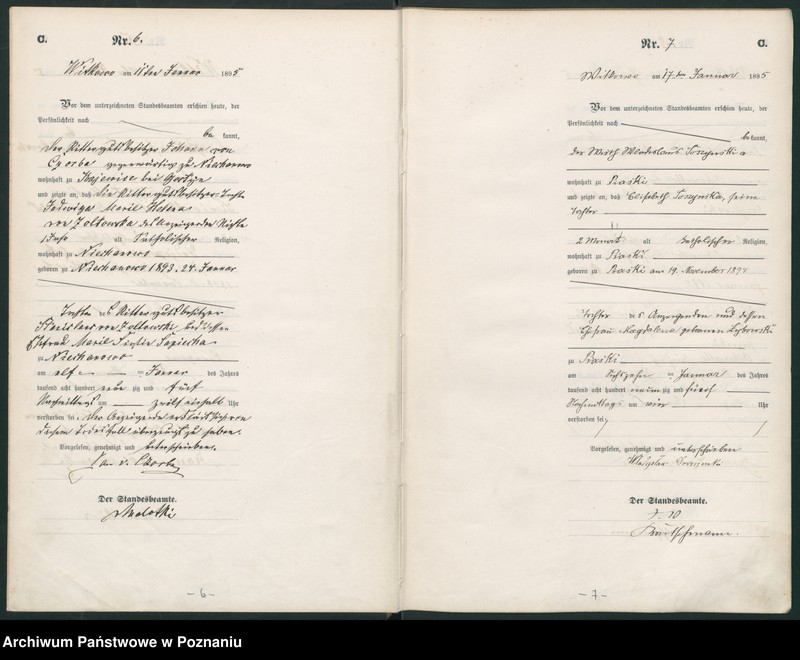 C.
Nr. 6.
Witkowo am 11ten Januar 1895
Vor dem unterzeichneten Standesbeamten erschien heute, der
Persönlichkeit nach
be kannt,
der Rittergutsbesitzer Johann von
Czorba gegenwärtig zu Niechanowo
wohnhaft zu
bei Gostyn
und zeigte an, daß die Rittergutsbesitzer Tochter
Jedwiga Maria Helena
von Zoltowska des Anzeigenden Nichte
1 Jahr alt katholischer Religion,
wohnhaft zu Niechanowo
geboren zu Niechanowo 1893. 24. Januar
Tochter des Rittergutsbesitzer
Stanislaus von Zoltowski, und dessen
Ehefrau Maria Sapieha
zu Niechanowo
am elf ten Januar des Jahres
tausend acht hundert neun zig und fünf
Nachmittags um zwölf einhalb Uhr
verstorben sei. Der Anzeigende erklärt sich von
diesem Todesfall überzeugt zu haben.
Vorgelesen, genehmigt und unterschrieben.
Jan v. Czorba
Der Standesbeamte.
- 6 -
Nr. 7
C.
Witkowo am 17ten Januar 1895
Vor dem unterzeichneten Standesbeamten erschien heute, der
Persönlichkeit nach
be kannt,
der Wirth Wladislaus
wohnhaft zu Piaski
und zeigte an, daß Elisabeth seine
Tochter
2 Monat alt katholischer Religion,
wohnhaft zu Piaski
geboren zu Piaski am 19. November 1894
Tochter des Anzeigenden und dessen
Ehefrau Magdalena geborenen
zu Piaski
am sechszehn ten Januar des Jahres
tausend acht hundert neun zig und fünf
Nachmittags um vier Uhr
verstorben sei
Vorgelesen, genehmigt und unterschrieben
Der Standesbeamte.
- 7 -
Archiwum Państwowe w Poznaniu